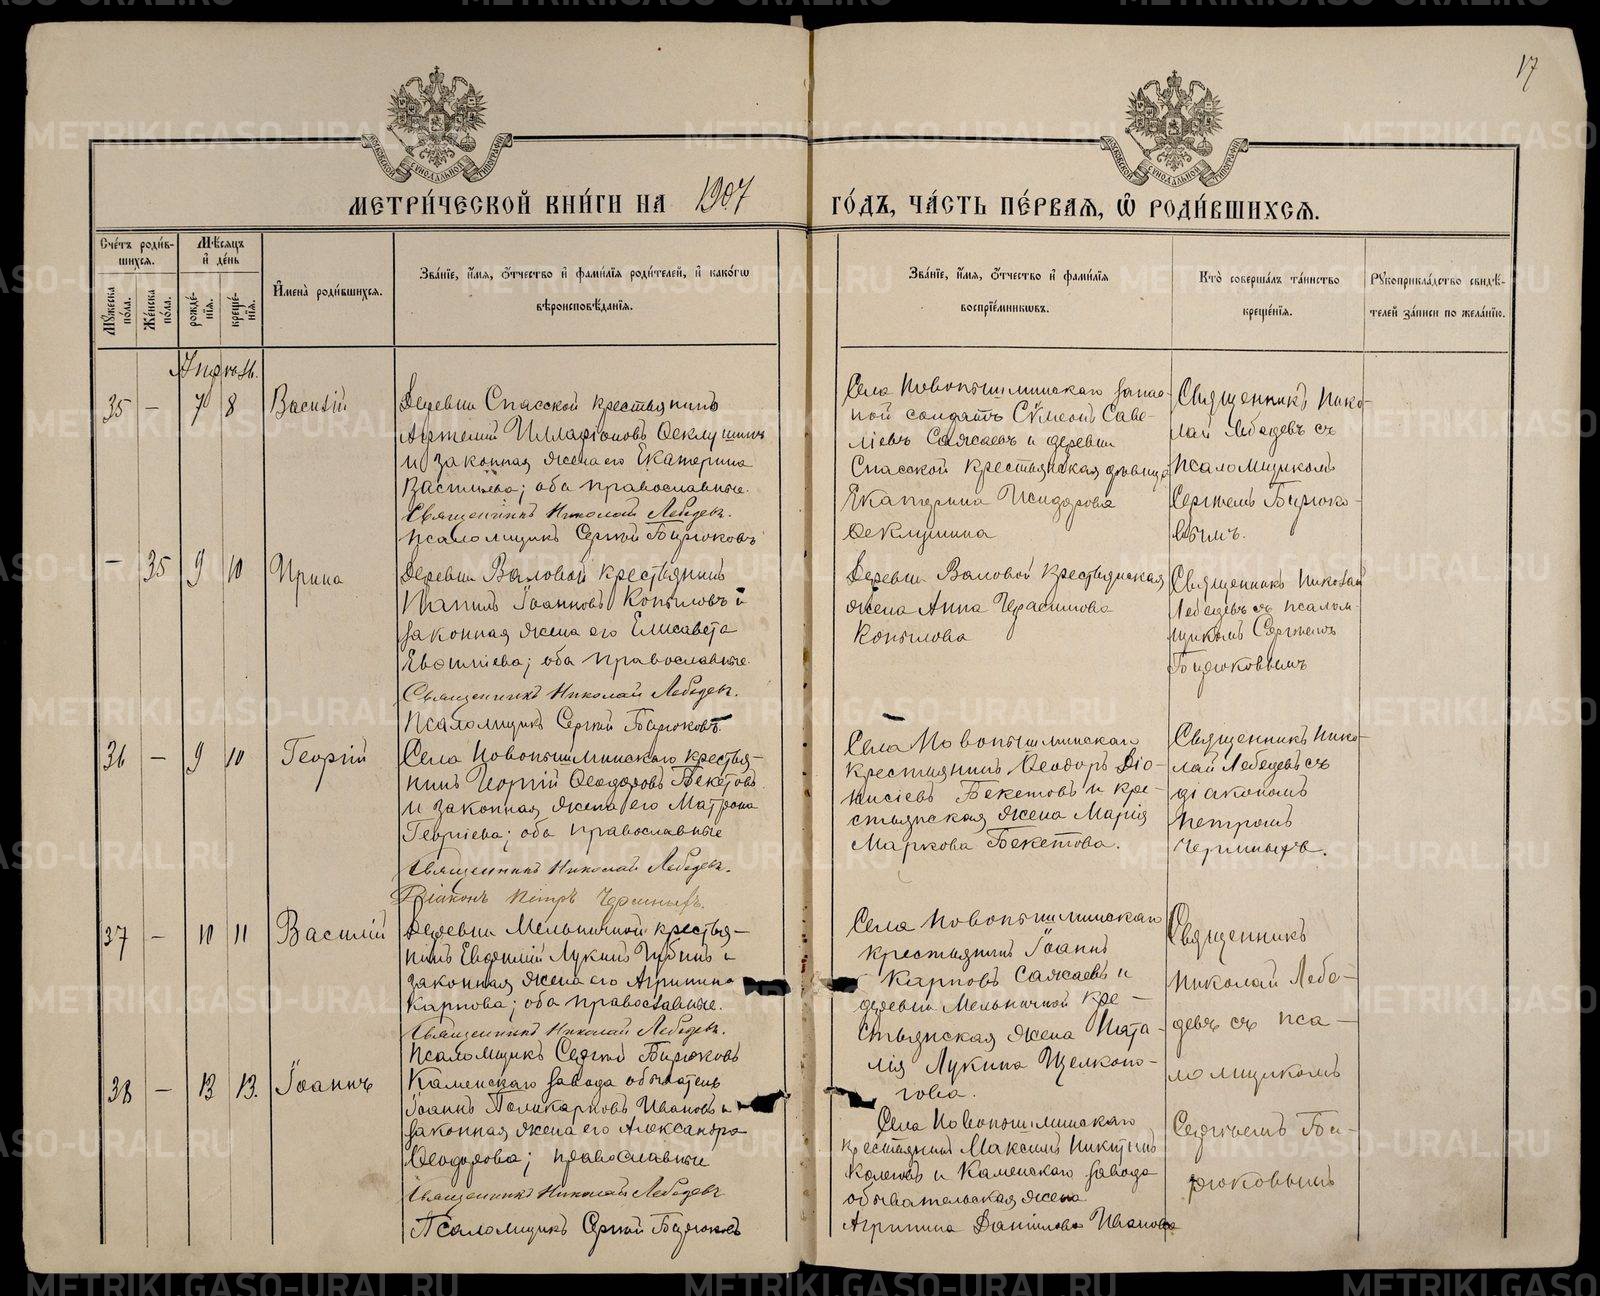 17
МЕТРИ́ЧЕСКОЙ КНИ́ГИ НА 1907 ГО́ДЪ, ЧА́СТЬ ПЕ́РВАЯ, Ѡ РОДИ́ВШИХСЯ.
Сче́тъ роди́в-
шихся.
Мѣ́сяцъ
и҆ де́нь
Мꙋ́жеска по́ла.
Же́нска по́ла.
рожде́-
нїѧ.
креще́-
нїѧ.
И҆мена̀ роди́вшихся.
Зва́нїе, и҆́мя, ѻ҆́тчество и҆ фами́лїя роди́телей, и҆ како́гѡ
вѣроисповѣ́данїя.
Зва́нїе, и҆́мя, ѻ҆́тчество и҆ фами́лїя
воспрїе́мникѡвъ.
Кто̀ соверша́лъ та́инство
креще́нїя.
Рꙋкоприкла́дство свидѣ́-
телей за́писи по жела́нїю.
Апрель.
35 — 7 8 Василій
Деревни Спасской крестьянинъ
Артемій Илларіоновъ Ѳеклушинъ
и законная жена его Екатерина
Васильева; оба православные.
Священникъ Николай Лебедевъ.
Псаломщикъ Сергій Бирюковъ
Села Новопышминскаго запас-
ной солдатъ Сѵмеонъ Саве-
ліевъ Сажаевъ и деревни
Спасской крестьянская дѣвица
Екатерина Исидорова
Ѳеклушина
Священникъ Нико-
лай Лебедевъ съ
псаломщикомъ
Сергіемъ Бирюко-
вымъ.
— 35 9 10 Ирина
Деревни Валовой крестьянинъ
Іоанновъ Копыловъ и
законная жена его Елисавета
Евѳиміева; оба православные.
Священникъ Николай Лебедевъ.
Псаломщикъ Сергій Бирюковъ.
Деревни Валовой крестьянская
жена Анна Герасимова
Копылова
Священникъ Николай
Лебедевъ съ псалом-
щикомъ Сергіемъ
Бирюковымъ
36 — 9 10 Георгій
Села Новопышминскаго крестья-
нинъ Георгій Ѳеодоровъ Бекетовъ
и законная жена его Матрона
Георгіева; оба православные
Священникъ Николай Лебедевъ.
Діаконъ Петръ Черемныхъ.
Села Новопышминскаго
крестьянинъ Ѳеодоръ Діо-
нисіевъ Бекетовъ и кре-
стьянская жена Марія
Маркова Бекетова.
Священникъ Нико-
лай Лебедевъ съ
діакономъ
Петромъ
Черемныхъ.
37 — 10 11 Василій
Деревни Мельничной крестья-
нинъ Евѳимій Лукинъ Губинъ и
законная жена его Агрипина
Карпова; оба православные.
Священникъ Николай Лебедевъ.
Псаломщикъ Сергій Бирюковъ
Села Новопышминскаго
крестьянинъ Іоаннъ
Карповъ Сажаевъ и
деревни Мельничной кре-
стьянская жена Ната-
лія Лукина Щелконо-
гова.
Священникъ
Николай Лебе-
девъ съ пса-
ломщикомъ
Сергіемъ Би-
рюковымъ
38 — 13 13. Іоаннъ
Каменскаго завода обыватель
Іоаннъ Поликарповъ Ивановъ и
законная жена его Александра
Ѳеодорова; православные
Священникъ Николай Лебедевъ
Псаломщикъ Сергій Бирюковъ
Села Новопышминскаго
крестьянинъ Максимъ Никитинъ
и Каменскаго завода
обывательская жена
Агрипина Даніилова Иванова